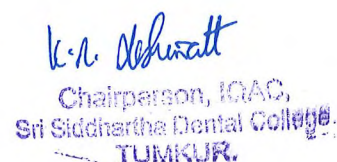 Chairperson, IQAC,
Sri Siddhartha Dental College.
TUMKUR.